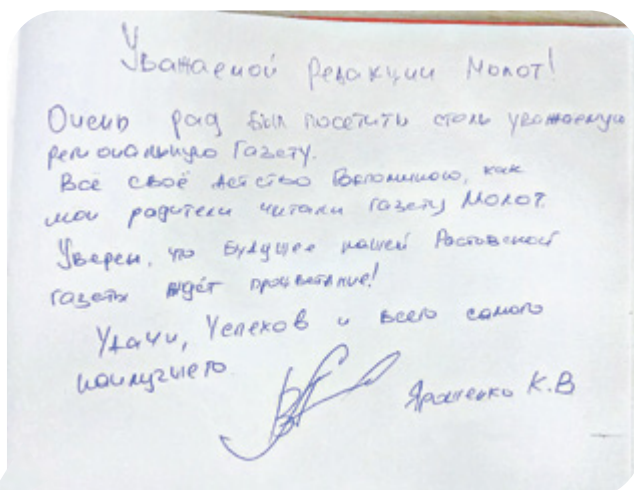 Уважаемой Редакции Молот!
Очень рад был посетить столь уважаемую
региональную Газету.
Всё своё детство Воспоминаю, как
мои родители читали газету Молот.
Уверен, что Будущее нашей Ростовской
газеты ждёт процветание!
Удачи, Успехов и всего самого
наилучшего
К.В